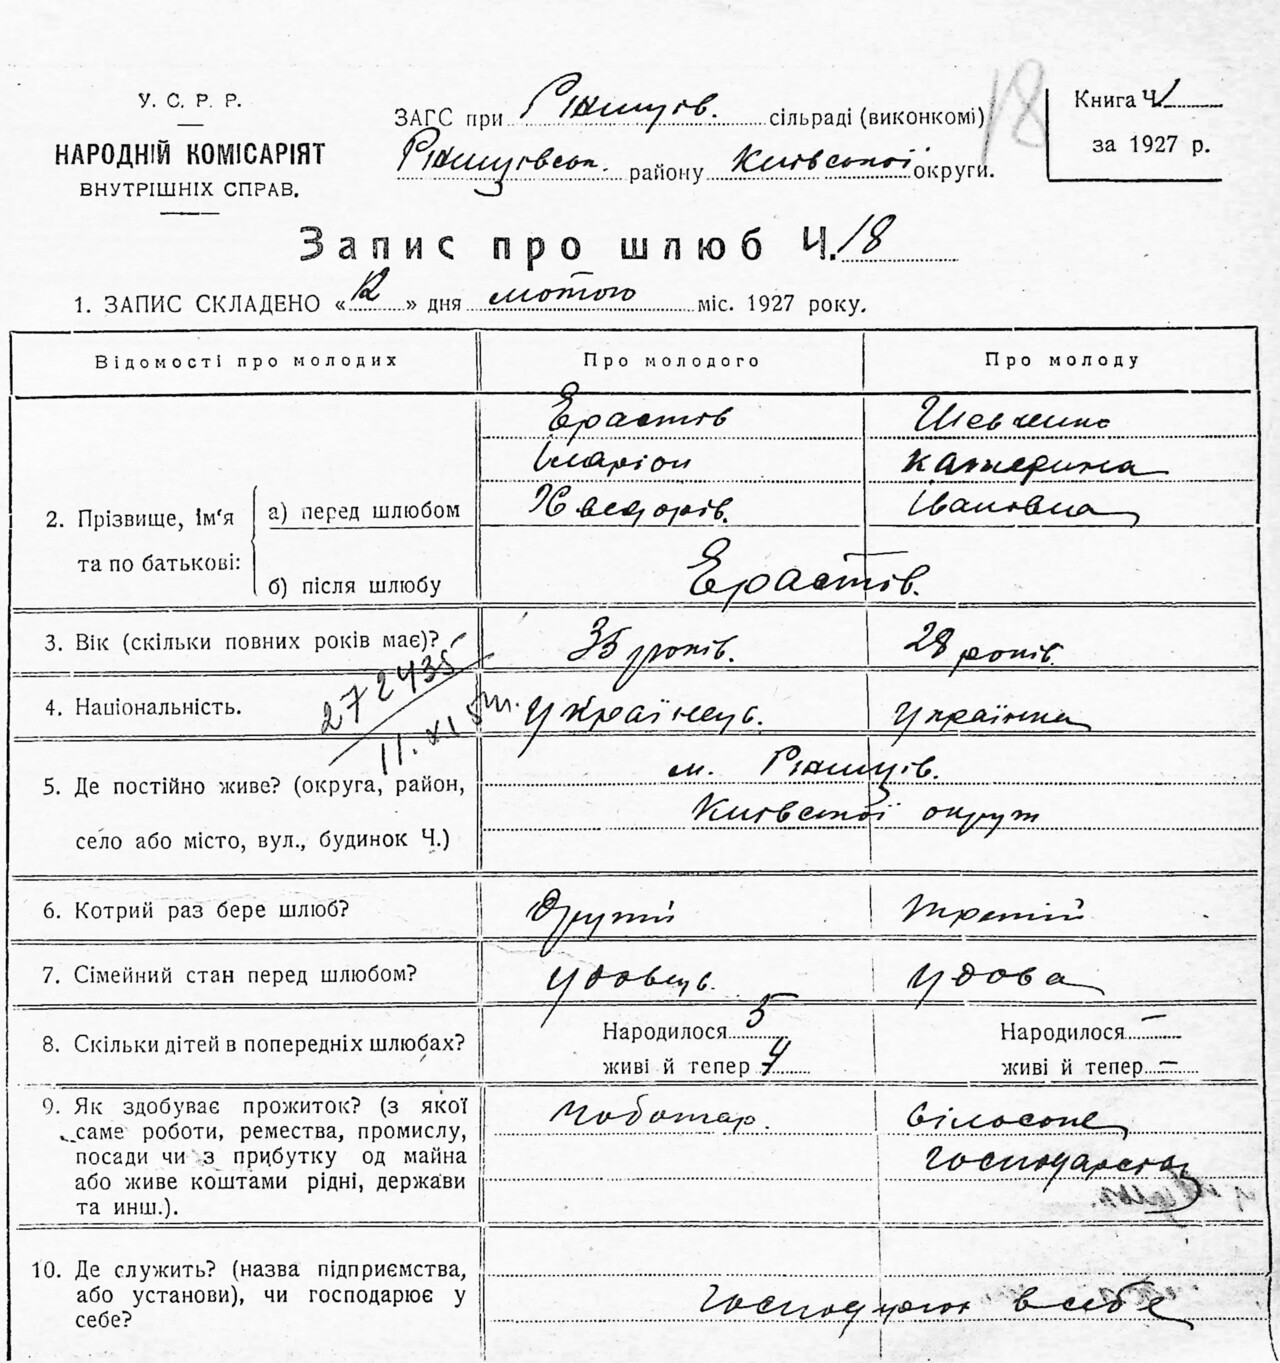 У. С. Р. Р.
НАРОДНІЙ КОМІСАРІЯТ
ВНУТРІШНІХ СПРАВ.
ЗАГС при Ржищів. сільраді (виконкомі)
Ржищівськ. району Київської округи.
18
Книга Ч. 1
за 1927 р.
Запис про шлюб Ч. 18
1. ЗАПИС СКЛАДЕНО «12» дня лютого міс. 1927 року.
Відомості про молодих Про молодого Про молоду
Ерастів Шевченко
Іларіон Катерина
Хведорів. Івановна
2. Прізвище, ім'я та по батькові: а) перед шлюбом
б) після шлюбу Ерастів.
3. Вік (скільки повних років має)? 35 років. 28 років.
272435
11. XI 5
4. Національність. Українець. Українка
5. Де постійно живе? (округа, район, м. Ржищів.
село або місто, вул., будинок Ч.) Київської округи
6. Котрий раз бере шлюб? Другий третій
7. Сімейний стан перед шлюбом? удовець. удова
8. Скільки дітей в попередніх шлюбах? Народилося 5 Народилося –
живі й тепер 4 живі й тепер –
9. Як здобуває прожиток? (з якої чоботар. сільське
саме роботи, ремества, промислу,
посади чи з прибутку од майна господарство
або живе коштами рідні, держави
та инш.).
10. Де служить? (назва підприємства,
або установи), чи господарює у господарює в себе
себе?